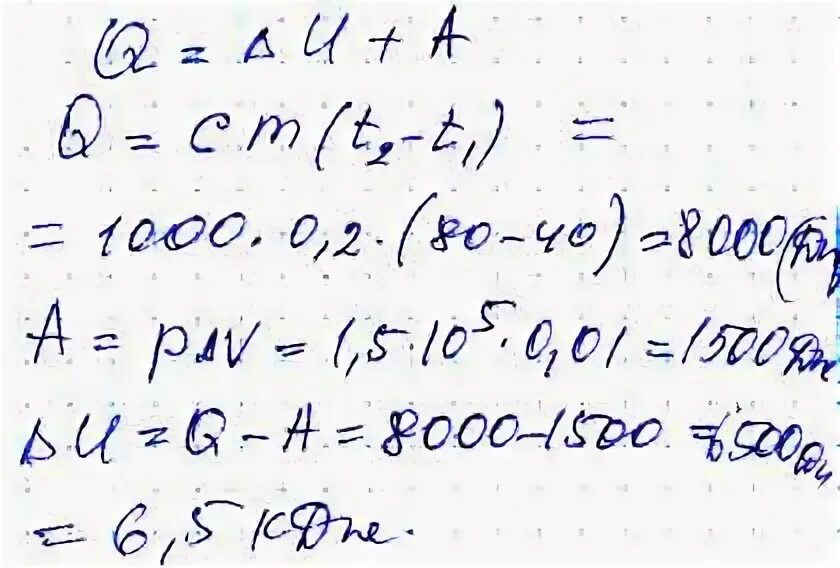 Q = ΔU + A
Q = cm(t₂-t₁) =
= 1000·0,2·(80-40) = 8000(Дж
A = pΔV = 1,5·10⁵·0,01 = 1500Дж
ΔU = Q - A = 8000-1500 = 6500Дж
= 6,5 кДж.